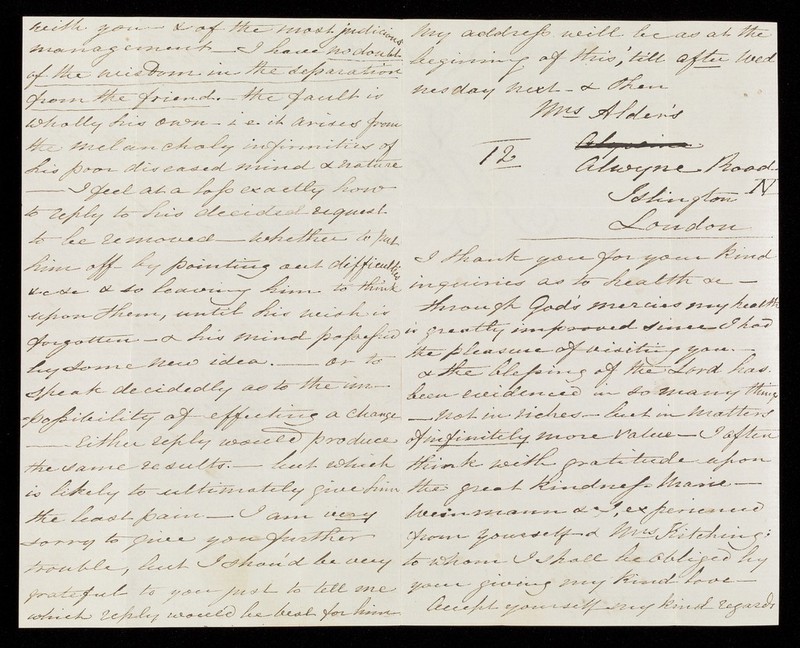 with you - & of the most judicious
management - I have no doubt
of the wisdom in the separation
from the friend. - the fault is
wholly his own - i.e. it arises from
the melancholy infirmities of
his poor diseased mind & nature
- I feel at a loss exactly how
to reply to his decided request
to be removed - whether to put
him off by pointing out difficulties
&c &c & so leaving him to think
upon them, until his wish is
forgotten - & his mind possessed
by some new idea. - or to
speak decidedly as to the im-
-possibility of effecting a change
- Either reply would produce
the same results. - but which
is likely to ultimately give him
the least pain - I am very
sorry to give you further
trouble, but I should be very
grateful to you just to tell me
which reply would be best for him
My address will be as at the
beginning of this, till after Wed
nesday next - & then
Mrs Alder's
12 Alwyne Road
Islington N
London
I thank you for your kind
inquiries as to health &c -
through God's mercies my health
is greatly improved since I had
the pleasure of visiting you -
& the blessing of the Lord has
been evidenced in so many things
- not in riches - but in matters
of infinitely more value - I often
think with gratitude upon
the great kindness Marie -
Weinmann & I, experienced
from yourself & Mrs Kitching;
to whom I shall be obliged by
your giving my kind love -
Accept yourself my kind regards